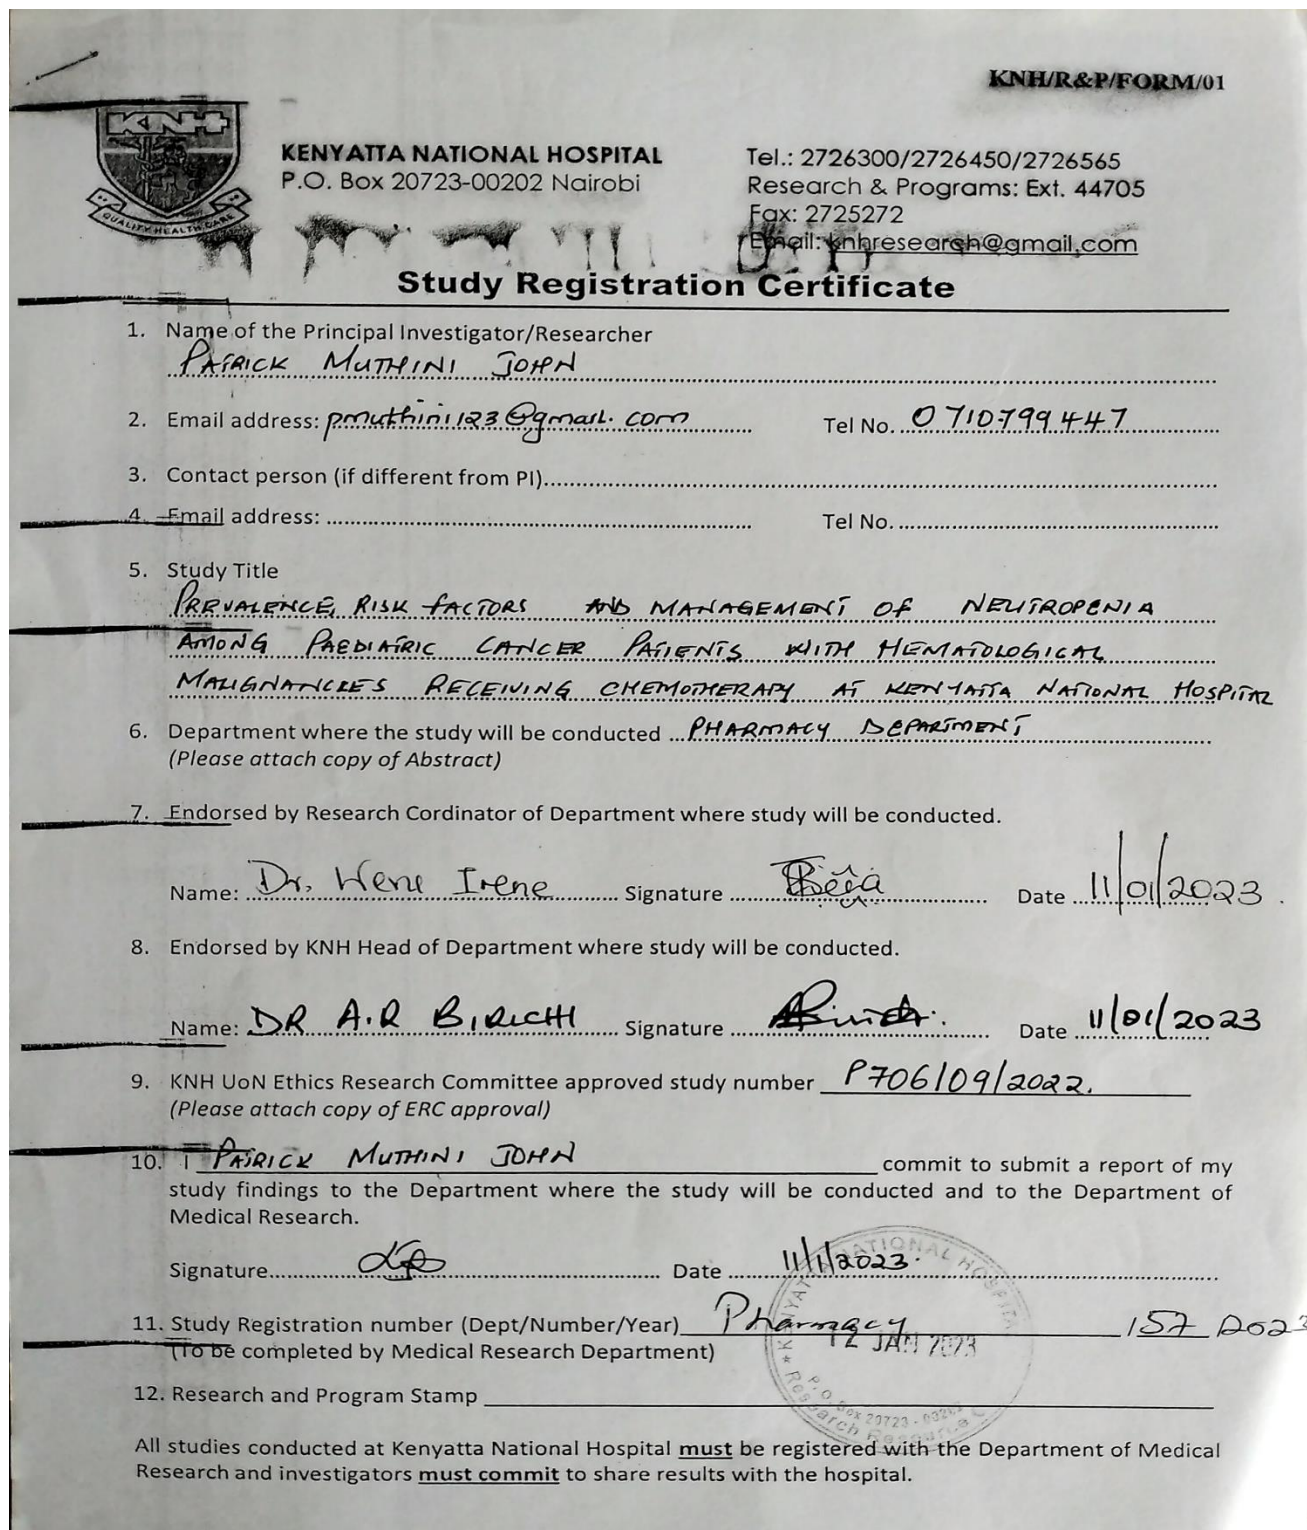 KNH/R&P/FORM/01
KNH
QUALITY HEALTH CARE
KENYATTA NATIONAL HOSPITAL
P.O. Box 20723-00202 Nairobi
Tel.: 2726300/2726450/2726565
Research & Programs: Ext. 44705
Fax: 2725272
Email: knhresearch@gmail.com
Study Registration Certificate
1. Name of the Principal Investigator/Researcher
PATRICK MUTHINI JOHN
2. Email address: pmuthini123@gmail.com Tel No. 0710799447
3. Contact person (if different from PI)
4. Email address: Tel No.
5. Study Title
PREVALENCE, RISK FACTORS AND MANAGEMENT OF NEUTROPENIA
AMONG PAEDIATRIC CANCER PATIENTS WITH HEMATOLOGICAL
MALIGNANCIES RECEIVING CHEMOTHERAPY AT KENYATTA NATIONAL HOSPITAL
6. Department where the study will be conducted PHARMACY DEPARTMENT
(Please attach copy of Abstract)
7. Endorsed by Research Cordinator of Department where study will be conducted.
Name: Dr. Irene Signature Date 11/01/2023.
8. Endorsed by KNH Head of Department where study will be conducted.
Name: DR A.R BIRICHI Signature Date 11/01/2023
9. KNH UoN Ethics Research Committee approved study number P706/09/2022.
(Please attach copy of ERC approval)
10. I PATRICK MUTHINI JOHN commit to submit a report of my
study findings to the Department where the study will be conducted and to the Department of
Medical Research.
Signature Date 11/1/2023.
11. Study Registration number (Dept/Number/Year) Pharmacy 157 2023
(To be completed by Medical Research Department)
KENYATTA NATIONAL HOSPITAL
12 JAN 2023
P. O. Box 20723 - 00202
Research
12. Research and Program Stamp
All studies conducted at Kenyatta National Hospital must be registered with the Department of Medical
Research and investigators must commit to share results with the hospital.